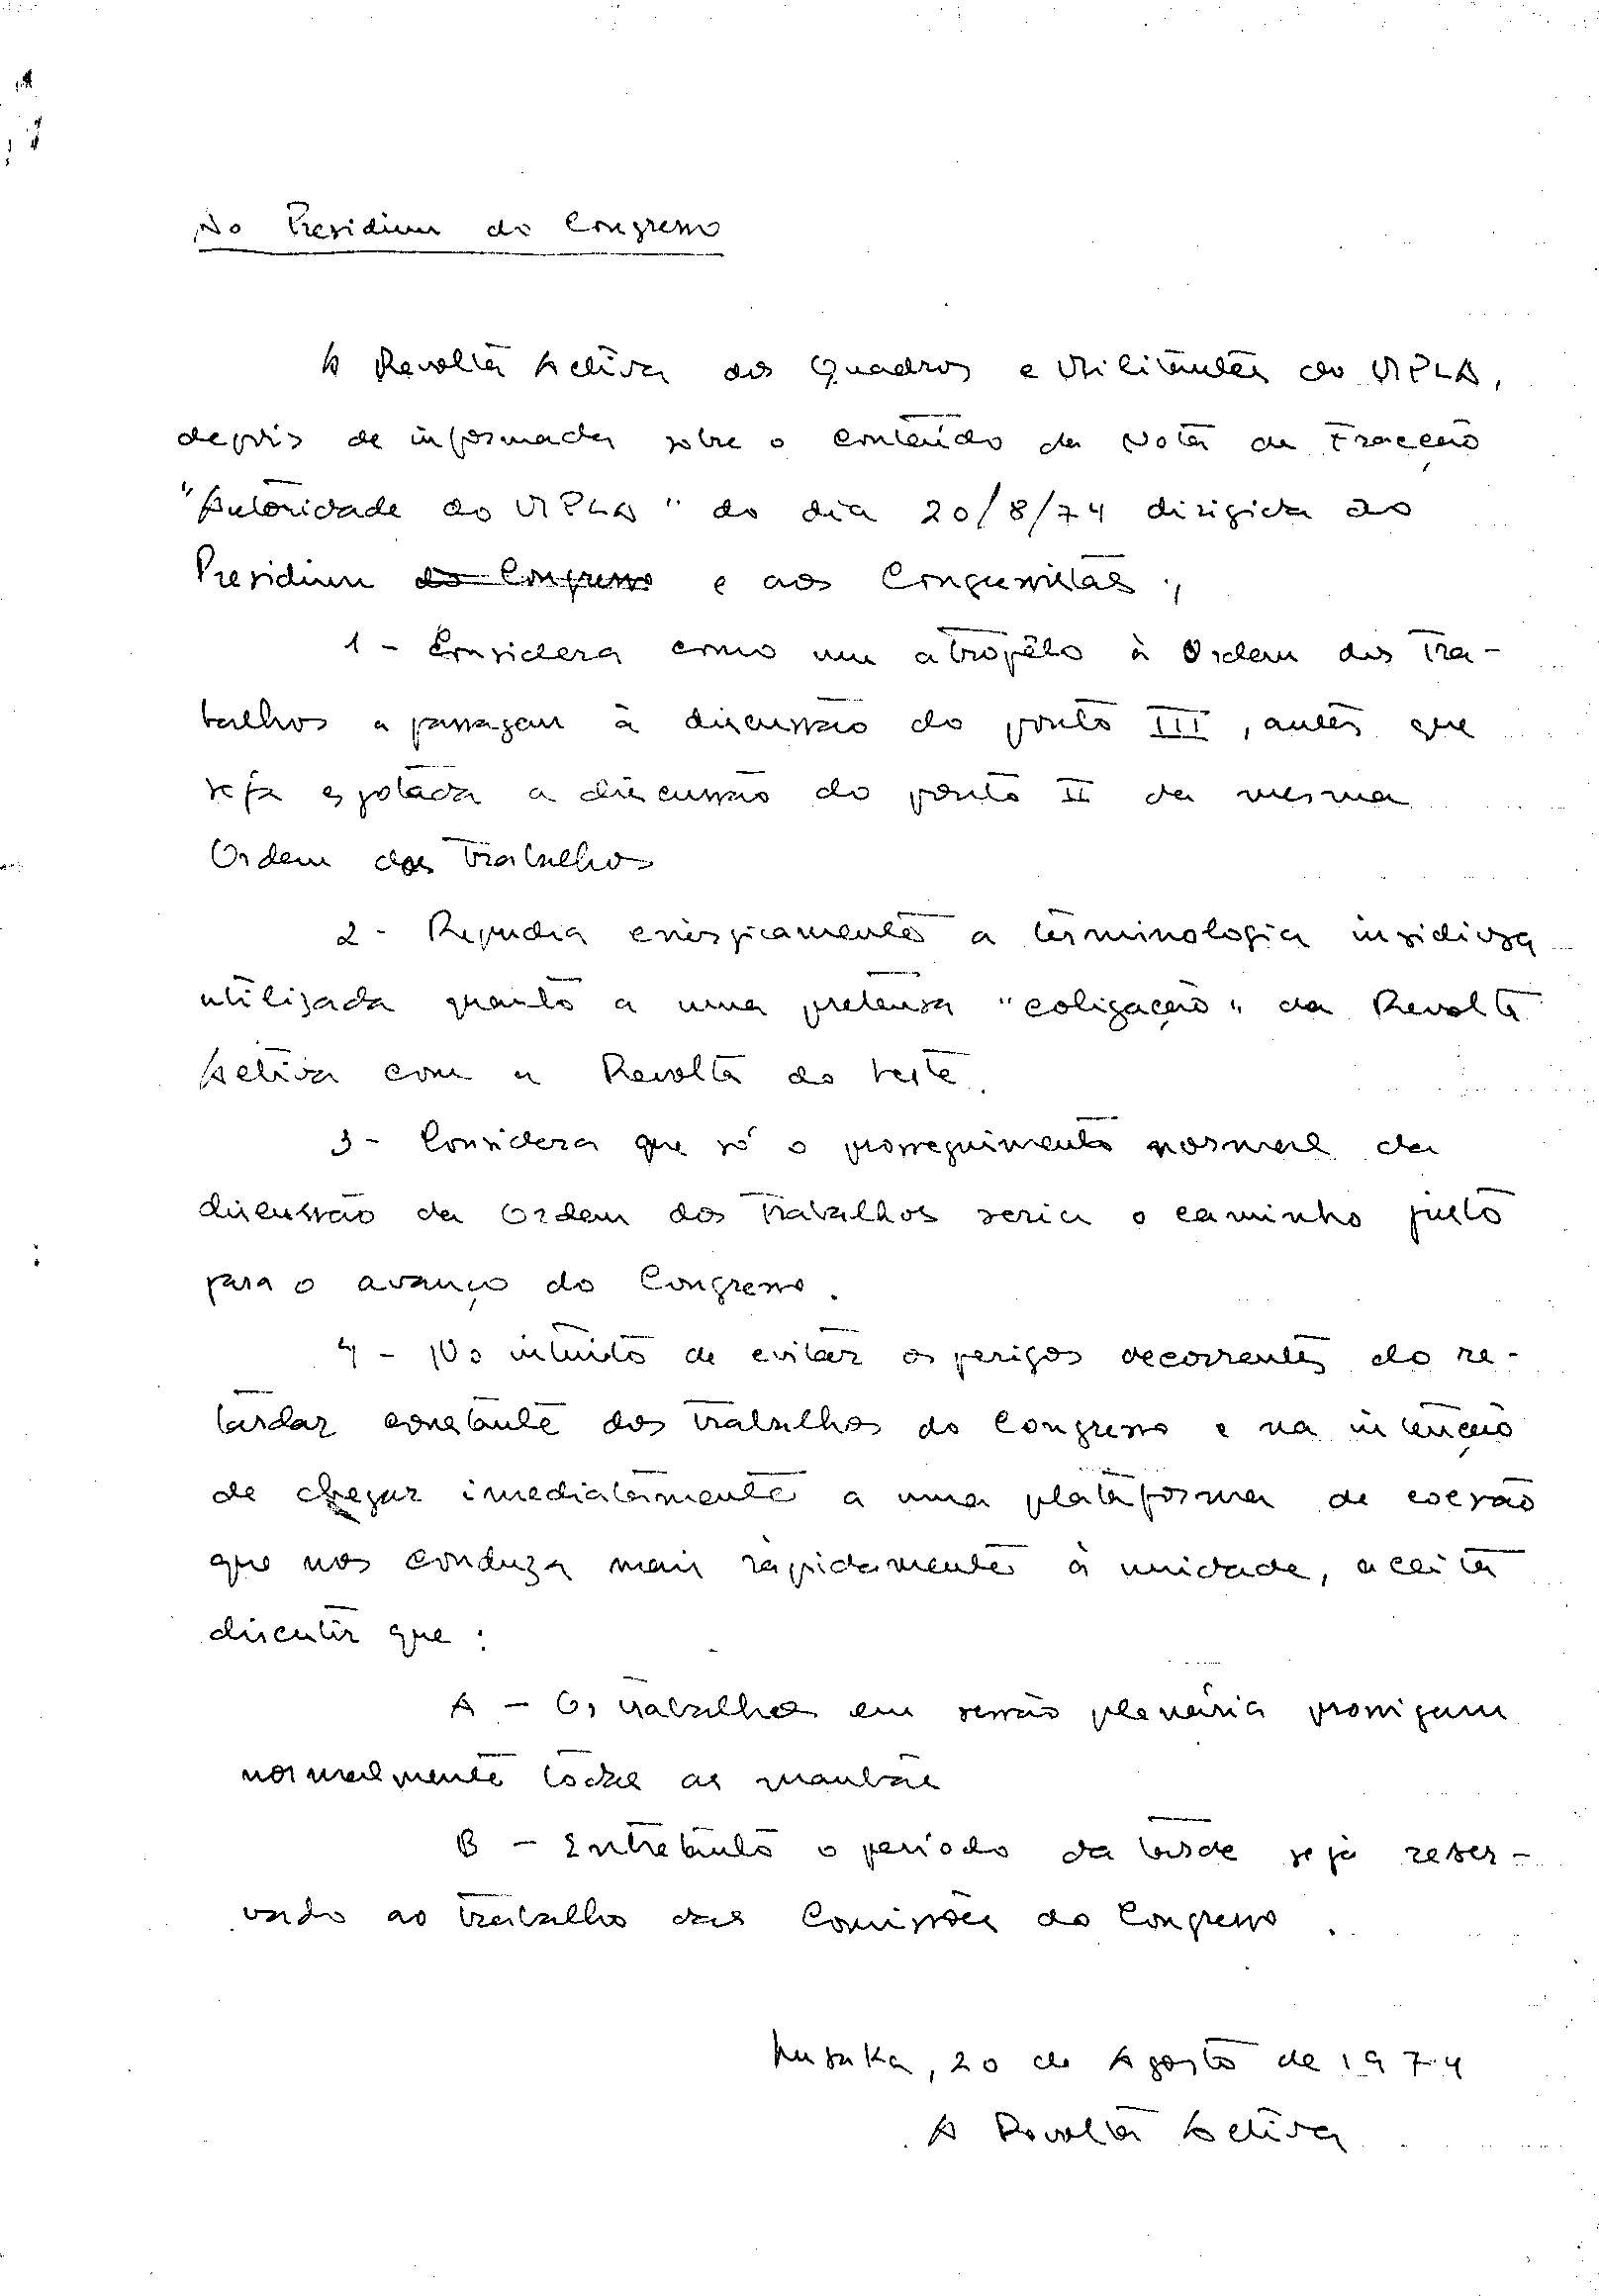 Ao Presidium do Congresso
A Revolta Activa dos Quadros e Militantes do MPLA,
depois de informada sobre o conteúdo da Nota da Fracção
"Autoridade do MPLA" do dia 20/8/74 dirigida ao
Presidium do Congresso e aos Congressistas,
1 - Considera como um atropêlo à Ordem dos Tra-
balhos a passagem à discussão do ponto III, antes que
seja esgotada a discussão do ponto II da mesma
Ordem dos Trabalhos
2 - Repudia enèrgicamente a terminologia insidiosa
utilizada quanto a uma pretensa "coligação" da Revolta
Activa com a Revolta do Leste.
3 - Considera que só o prosseguimento normal da
discussão da Ordem dos Trabalhos seria o caminho justo
para o avanço do Congresso.
4 - No intuito de evitar os perigos decorrentes do re-
tardar constante dos trabalhos do Congresso e na intenção
de chegar imediatamente a uma plataforma de coesão
que nos conduza mais ràpidamente à unidade, aceita
discutir que:
A - Os trabalhos em sessão plenária prossigam
normalmente todas as manhãs
B - Entretanto o período da tarde seja reser-
vado ao trabalho das Comissões do Congresso.
Lusaka, 20 de Agosto de 1974
A Revolta Activa